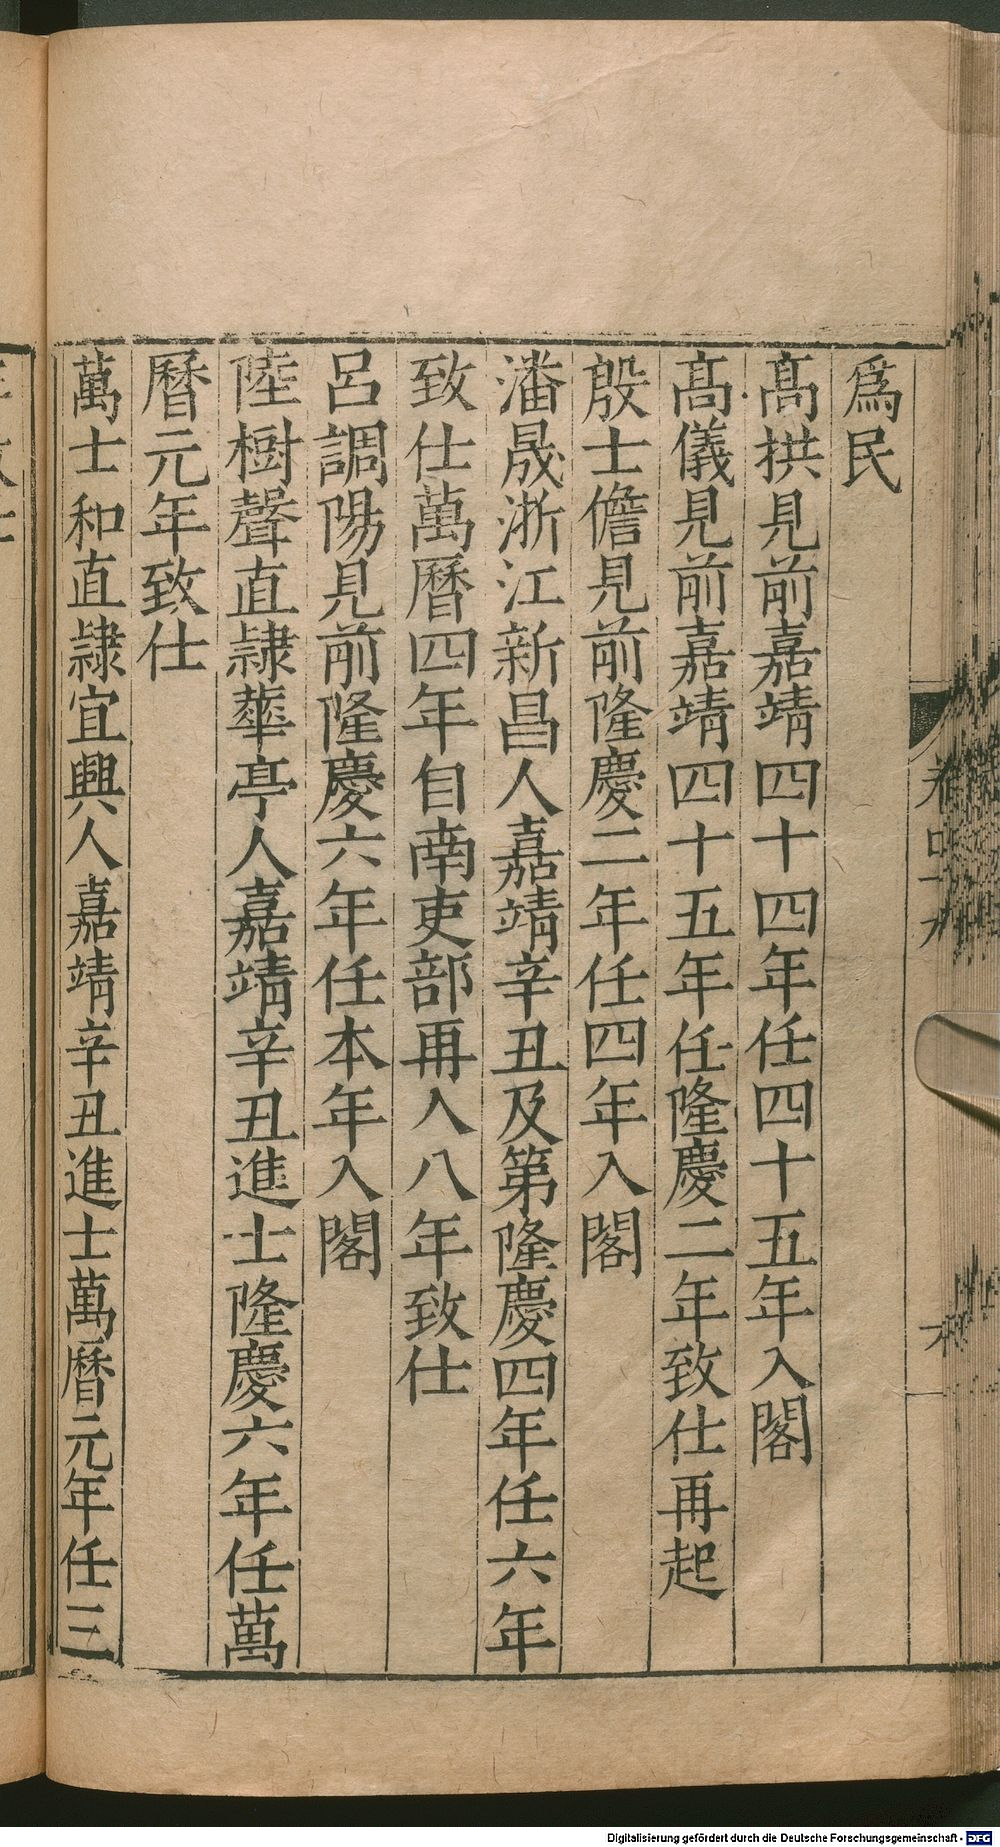 爲民
髙拱見前嘉靖四十四年任四十五年入閣
髙儀見前嘉靖四十五年任隆慶二年致仕再起
殷士儋見前隆慶二年任四年入閣
潘晟浙江新昌人嘉靖辛丑及第隆慶四年任六年
致仕萬曆四年自南吏部再入八年致仕
呂調陽見前隆慶六年任本年入閣
陸樹聲直隷華亭人嘉靖辛丑進士隆慶六年任萬
曆元年致仕
萬士和直隷宜興人嘉靖辛丑進士萬曆元年任三
Digitalisierung gefördert durch die Deutsche Forschungsgemeinschaft - DFG